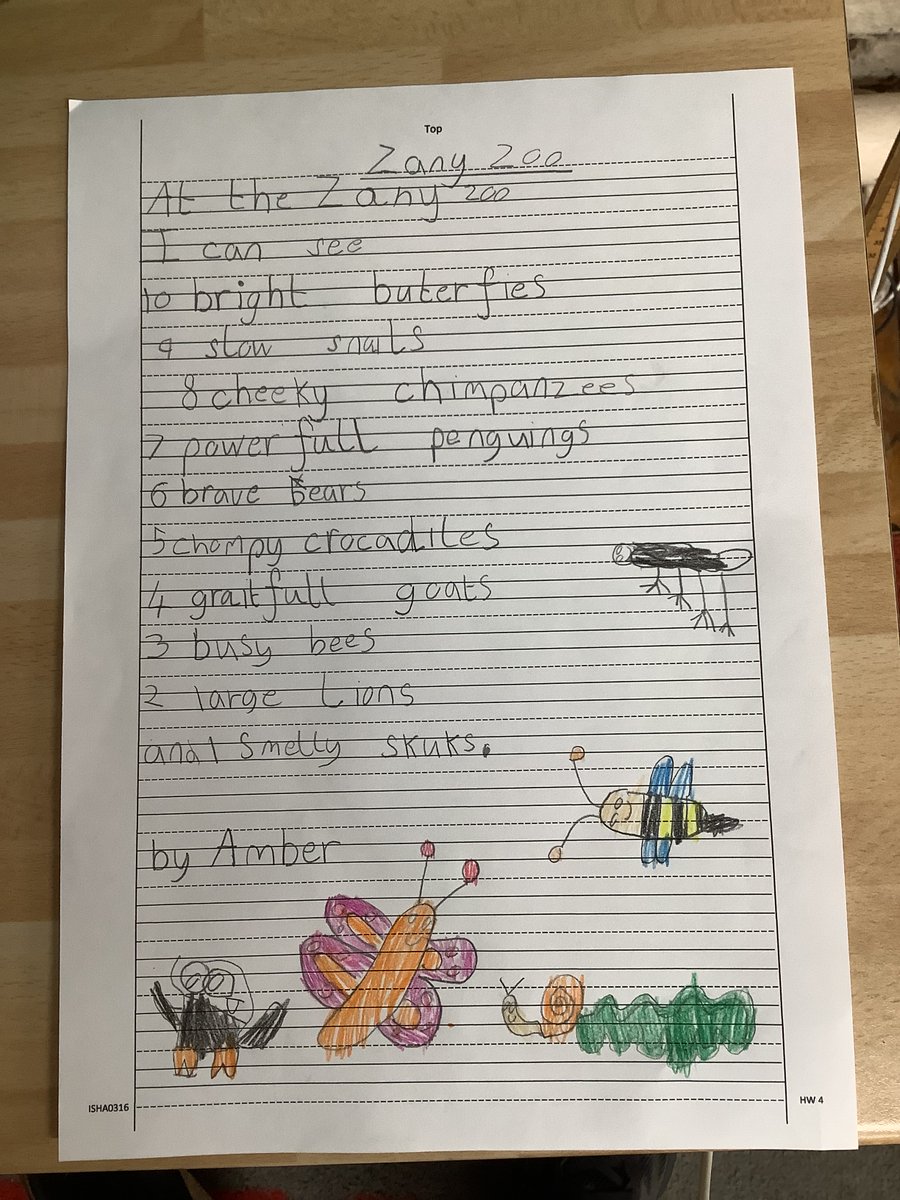 Top
Zany Zoo
At the Zany zoo
I can see
10 bright buterfies
9 slow snails
8 cheeky chimpanzees
7 powerfull penguings
6 brave Bears
5 chompy crocadiles
4 graitfull goats
3 busy bees
2 large Lions
and 1 Smelly skuks.
by Amber
ISHA0316
HW 4